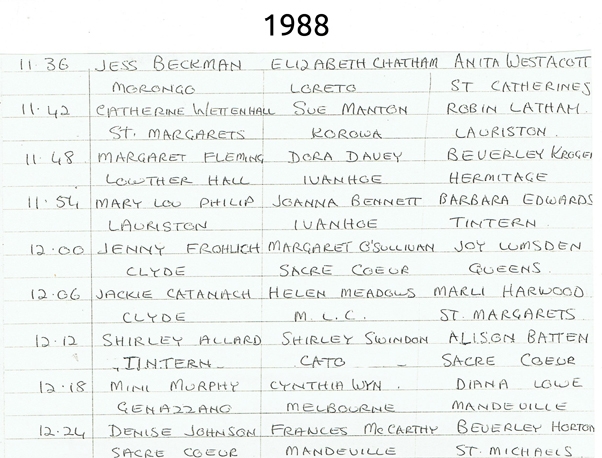 1988
11.36 JESS BECKMAN ELIZABETH CHATHAM ANITA WESTACOTT
MORONGO LORETO ST CATHERINES
11.42 CATHERINE WETTENHALL SUE MANTON ROBIN LATHAM.
ST. MARGARETS KOROWA LAURISTON.
11.48 MARGARET FLEMING DORA DAVEY BEVERLEY KROGER
LOWTHER HALL IVANHOE HERMITAGE
11.54 MARY LOU PHILIP JOANNA BENNETT BARBARA EDWARDS
LAURISTON IVANHOE TINTERN.
12.00 JENNY FROHLICH MARGARET O'SULLIVAN JOY LUMSDEN
CLYDE SACRE COEUR QUEENS.
12.06 JACKIE CATANACH HELEN MEADOWS MARLI HARWOOD
CLYDE M.L.C. ST. MARGARETS
12.12 SHIRLEY ALLARD SHIRLEY SWINDON ALISON BATTEN
TINTERN CATO SACRE COEUR
12.18 MINI MURPHY CYNTHIA WYN. DIANA LOWE
GENAZZANO MELBOURNE MANDEVILLE
12.24 DENISE JOHNSON FRANCES McCARTHY BEVERLEY HORTON
SACRE COEUR MANDEVILLE ST. MICHAELS.